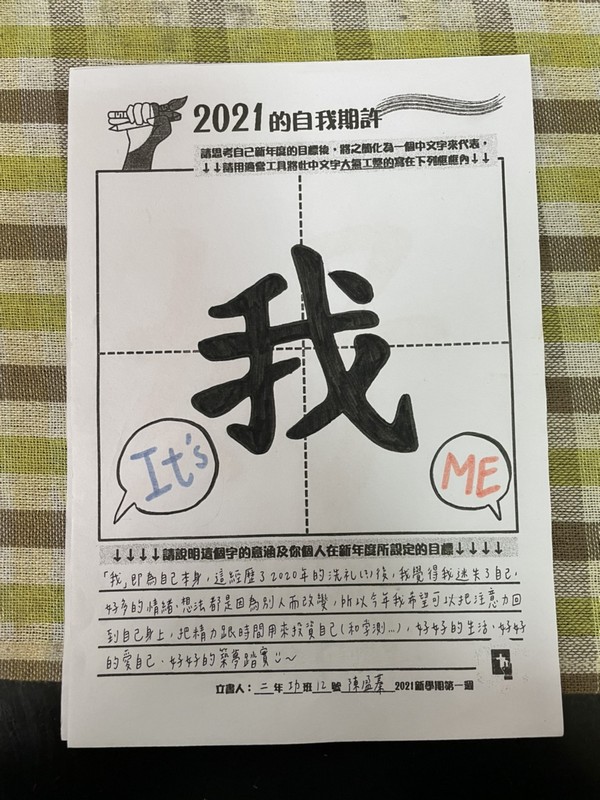 2021的自我期許
請思考自己新年度的目標後，將之簡化為一個中文字來代表，
↓↓請用適當工具將此中文字大氣工整的寫在下列框框內↓↓
我
It's
ME
↓↓↓↓請說明這個字的意涵及你個人在新年度所設定的目標↓↓↓↓
「我」即為自己本身，這經歷了2020年的洗禮後，我覺得我迷失了自己，
好多的情緒、想法都是因為別人而改變，所以今年我希望可以把注意力回
到自己身上，把精力跟時間用來投資自己(和學測...)，好好的生活、好好
的愛自己、好好的築夢踏實～
立書人：二年功班12號 陳 2021新學期第一週